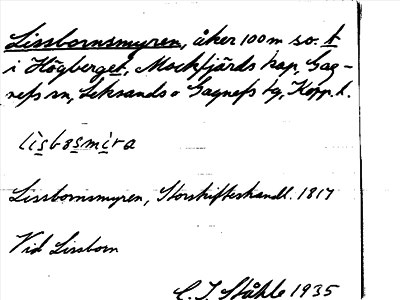 Lissbornsmyren, åker 100 m so. t
i Högberget, Mockfjärds kap, Gag-
nefs sn, Leksands o Gagnefs tg, Kopp. l.
lisbosmira
Lissbornsmyren, Storskifteshandl. 1817
Vid Lissborn
C. I. Ståhle 1935